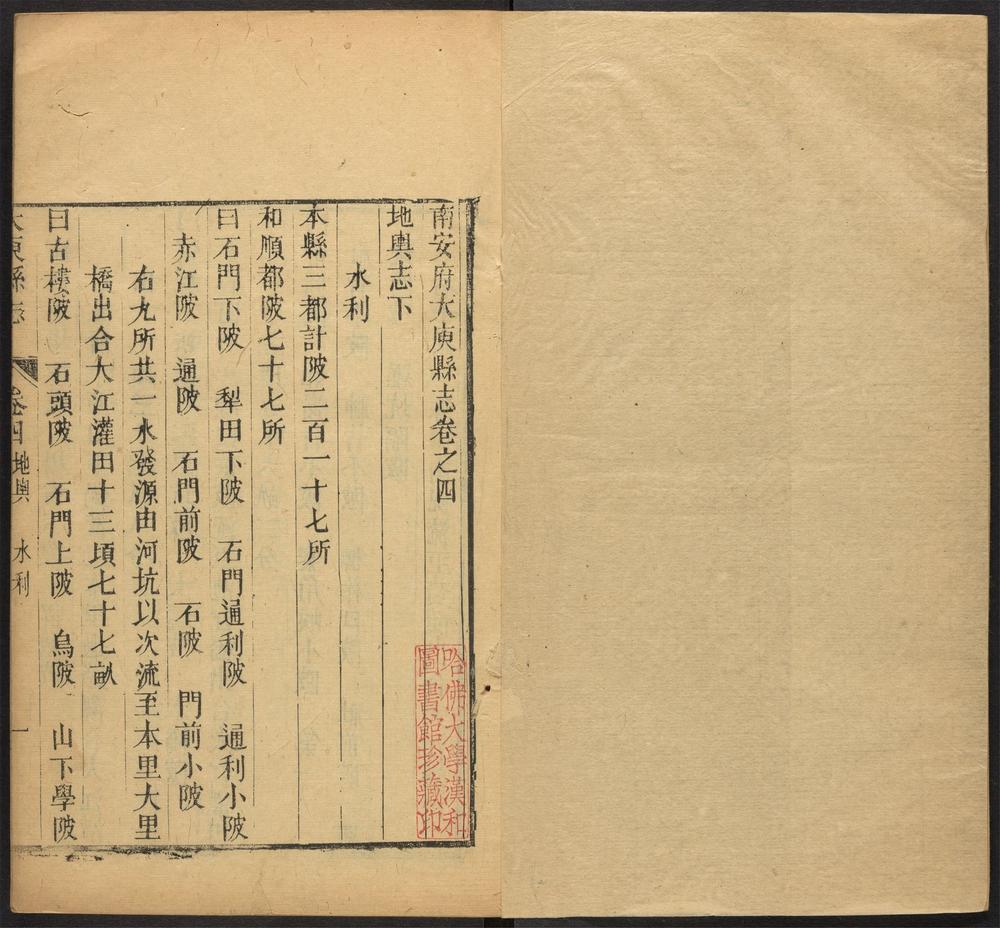 南安府大庾縣志卷之四
地輿志下
水利
本縣三都計陂二百一十七所
和順都陂七十七所
曰石門下陂　犁田下陂　石門通利陂　通利小陂
赤江陂　通陂　石門前陂　石陂　門前小陂
右九所共一水發源由河坑以次流至本里大里
橋出合大江灌田十三頃七十七畝
曰古樓陂　石頭陂　石門上陂　烏陂　山下學陂
大庾縣志　卷四　地輿　水利　一
哈佛大學漢和
圖書館珍藏印